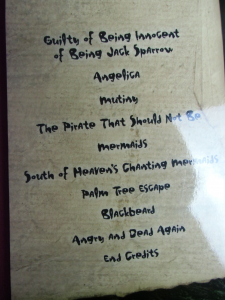 Guilty of Being Innocent
of Being Jack Sparrow
Angelica
Mutiny
The Pirate That Should Not Be
Mermaids
South of Heaven's Chanting Mermaids
Palm Tree Escape
Blackbeard
Angry and Dead Again
End Credits